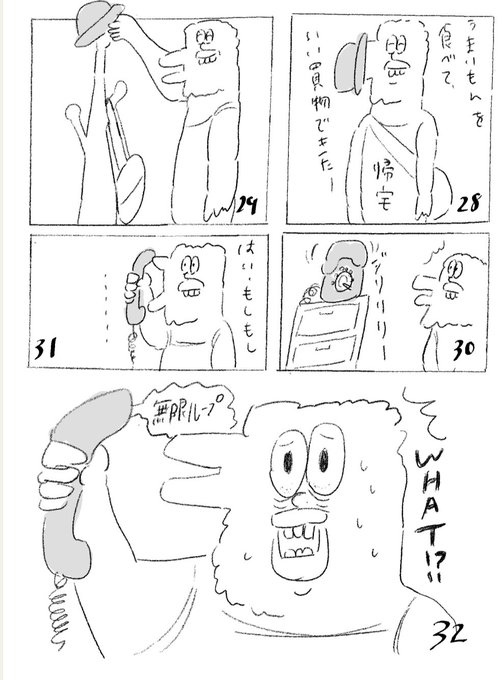 うまいもんを
食べて、
いい買物できたー
帰宅
28
29
ジリリリリー
30
はい、もしもし
・・・・・・
31
無限ループ
WHAT!?!!
32